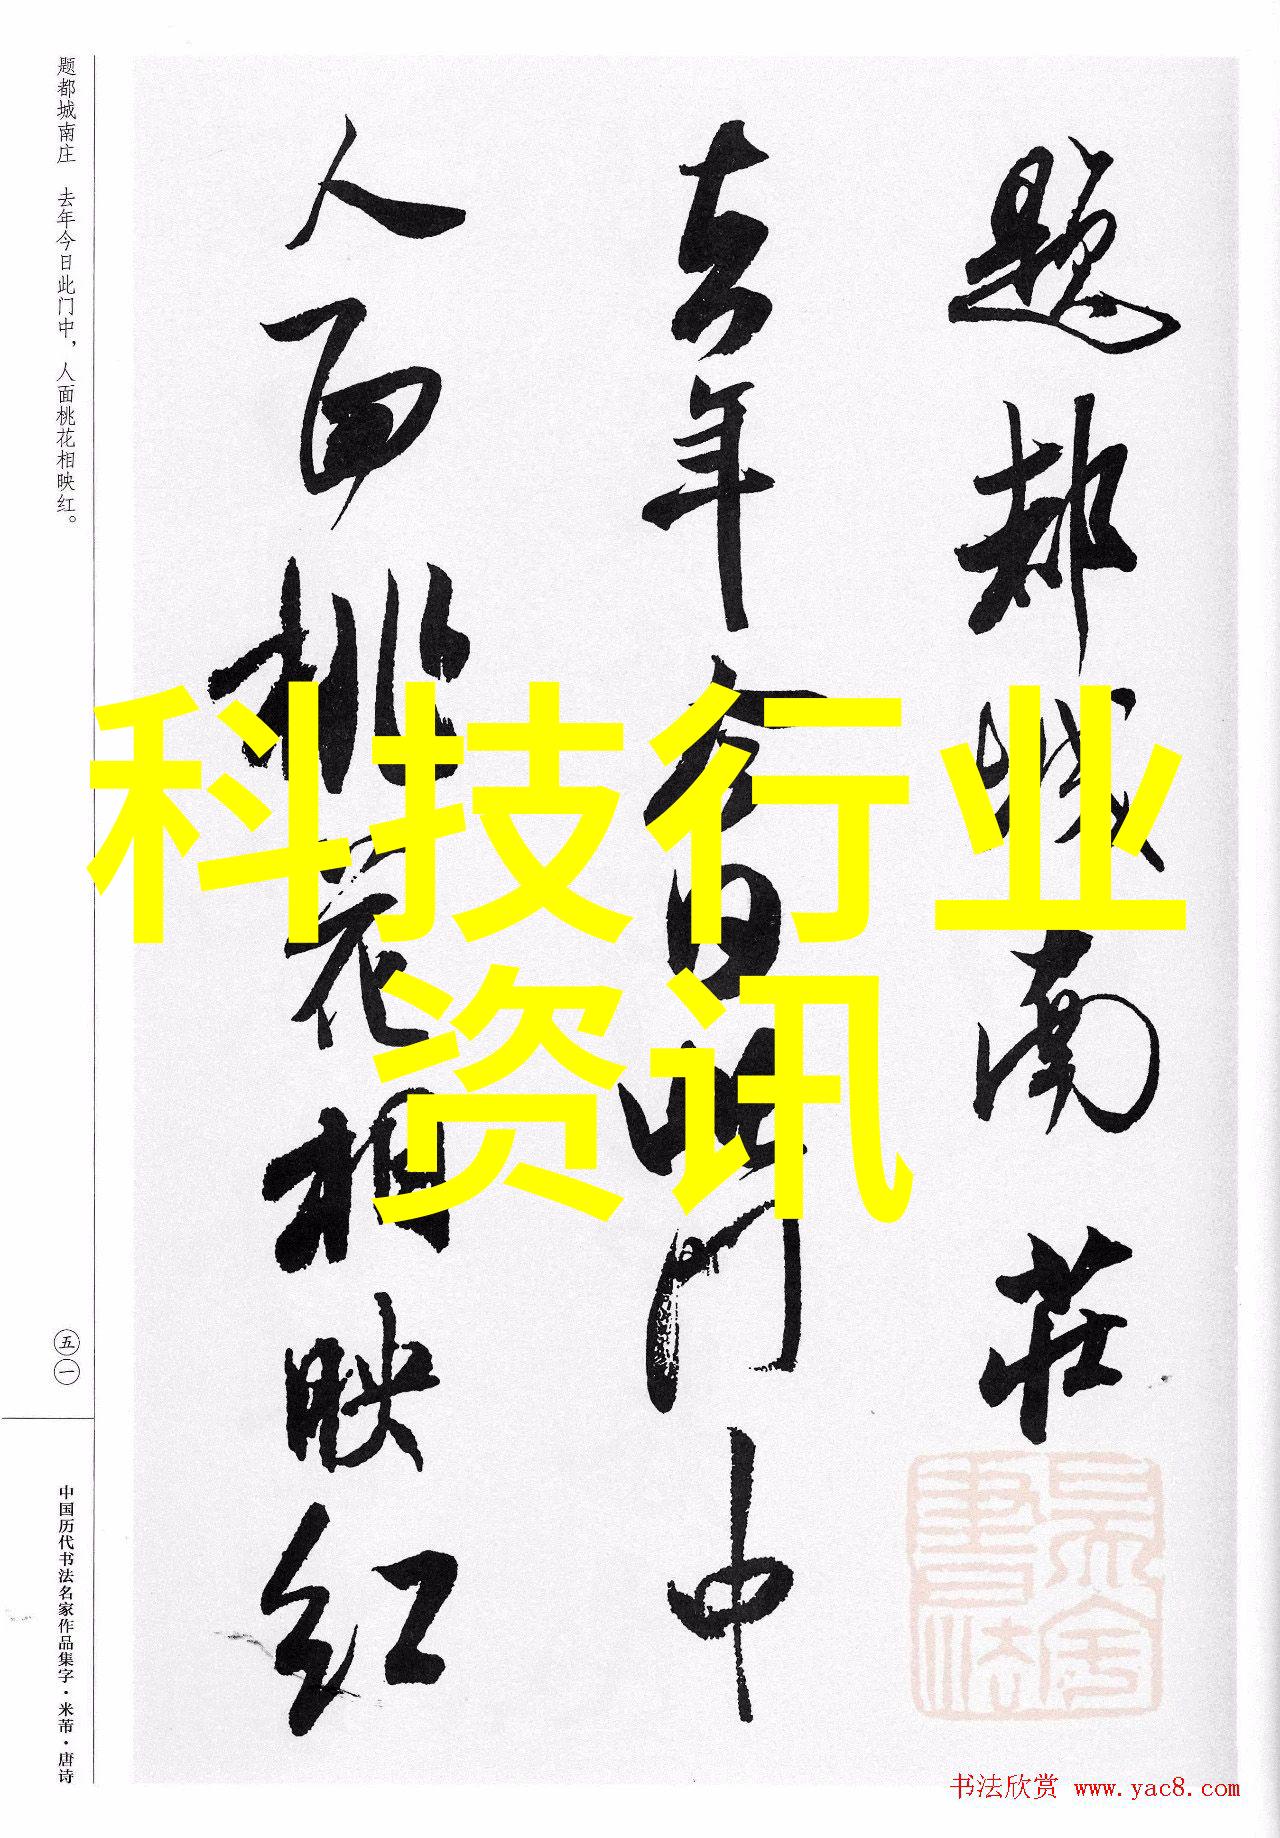 题都城南庄
去年今日此门中
人面桃花相映红
题都城南庄 去年今日此门中，人面桃花相映红。
五一
中国历代书法名家作品集字·米芾·唐诗
科技行业
资讯
书法欣赏 www.yac8.com